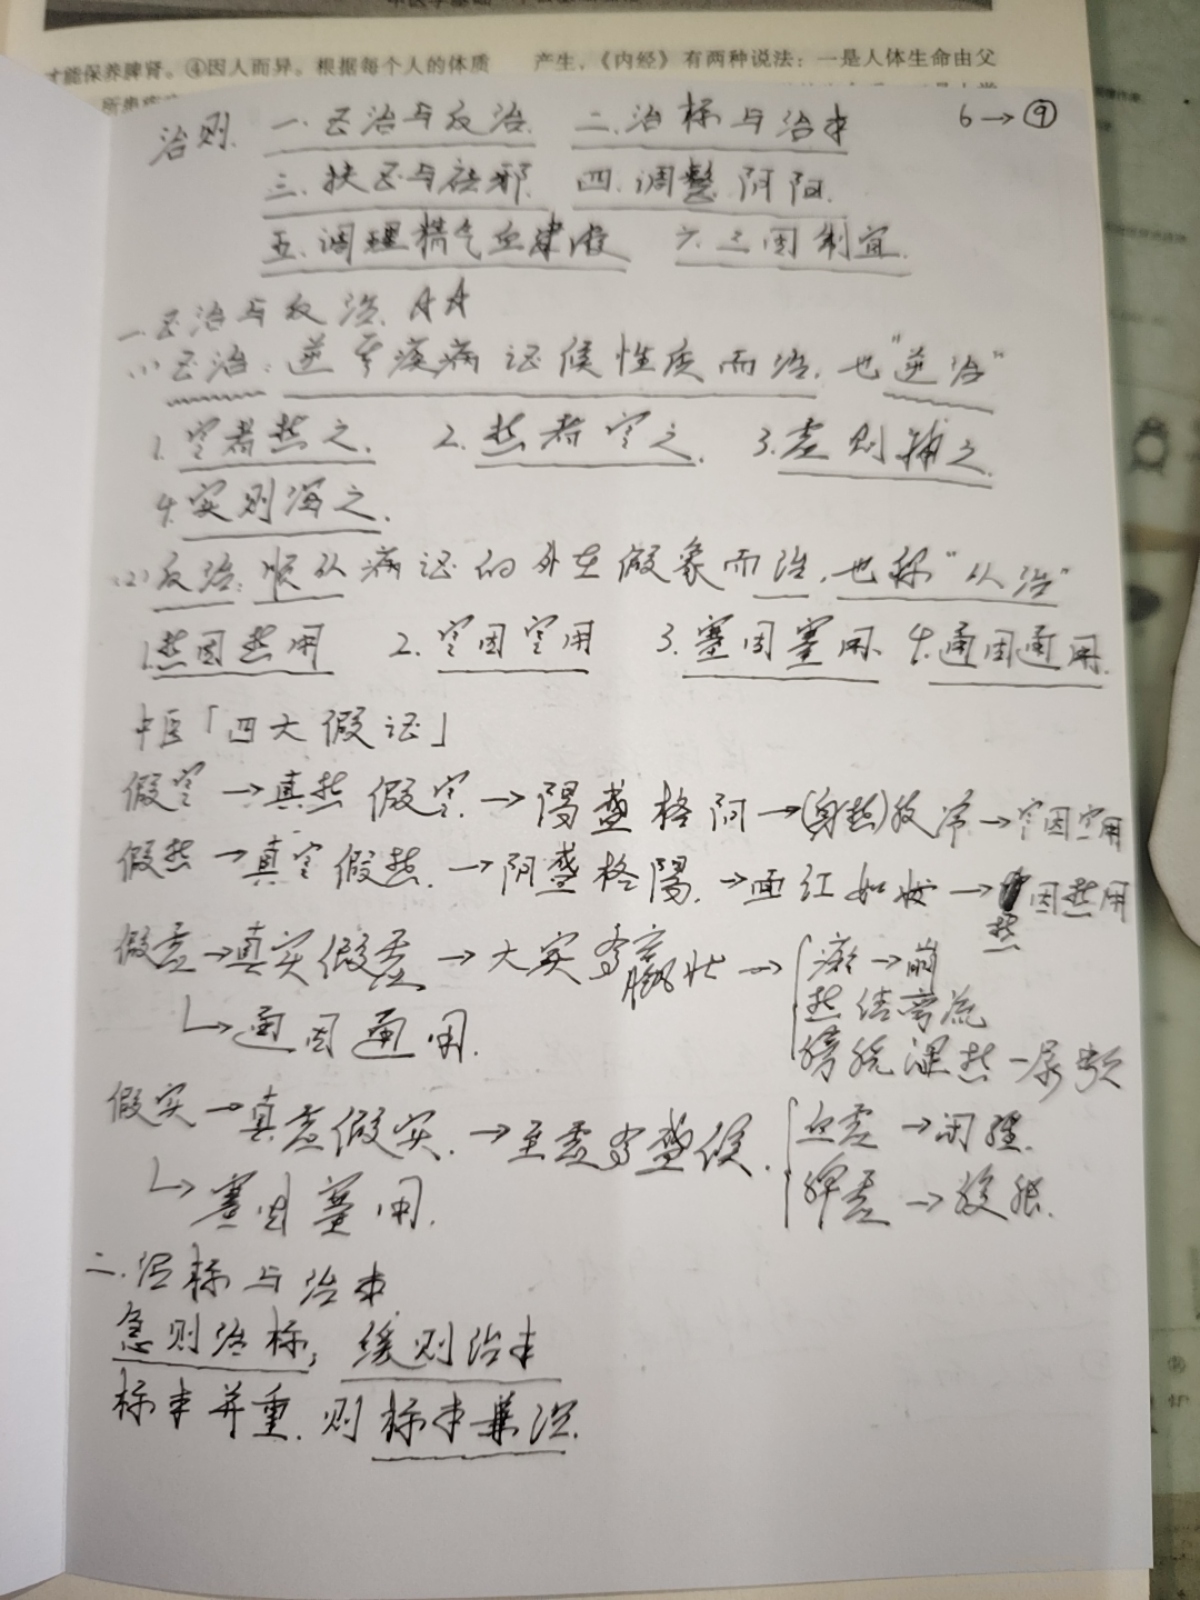 才能保养脾肾。④因人而异。根据每个人的体质
产生,《内经》有两种说法:一是人体生命由父
6→⑨
治则. 一.正治与反治. 二.治标与治本
三.扶正与祛邪. 四.调整阴阳.
五.调理精气血津液 六.三因制宜.
一.正治与反治.
(1)正治:逆着疾病证候性质而治.也"逆治"
1.寒者热之. 2.热者寒之. 3.虚则补之.
4.实则泻之.
(2)反治:顺从病证的外在假象而治.也称"从治"
1.热因热用 2.寒因寒用 3.塞因塞用. 4.通因通用.
中医「四大假证」
假寒→真热假寒.→陽盛格阴→(身热)肢冷→寒因寒用
假热→真寒假热.→阴盛格陽.→面红如妆→热因热用
假虚→真实假虚→大实有羸状→瘀→崩
热结旁流
膀胱湿热—尿频
↳通因通用.
假实→真虚假实.→至虚有盛候.血虚→闭经.
脾虚→腹胀.
↳塞因塞用.
二.治标与治本
急则治标;缓则治本
标本并重.则标本兼治.